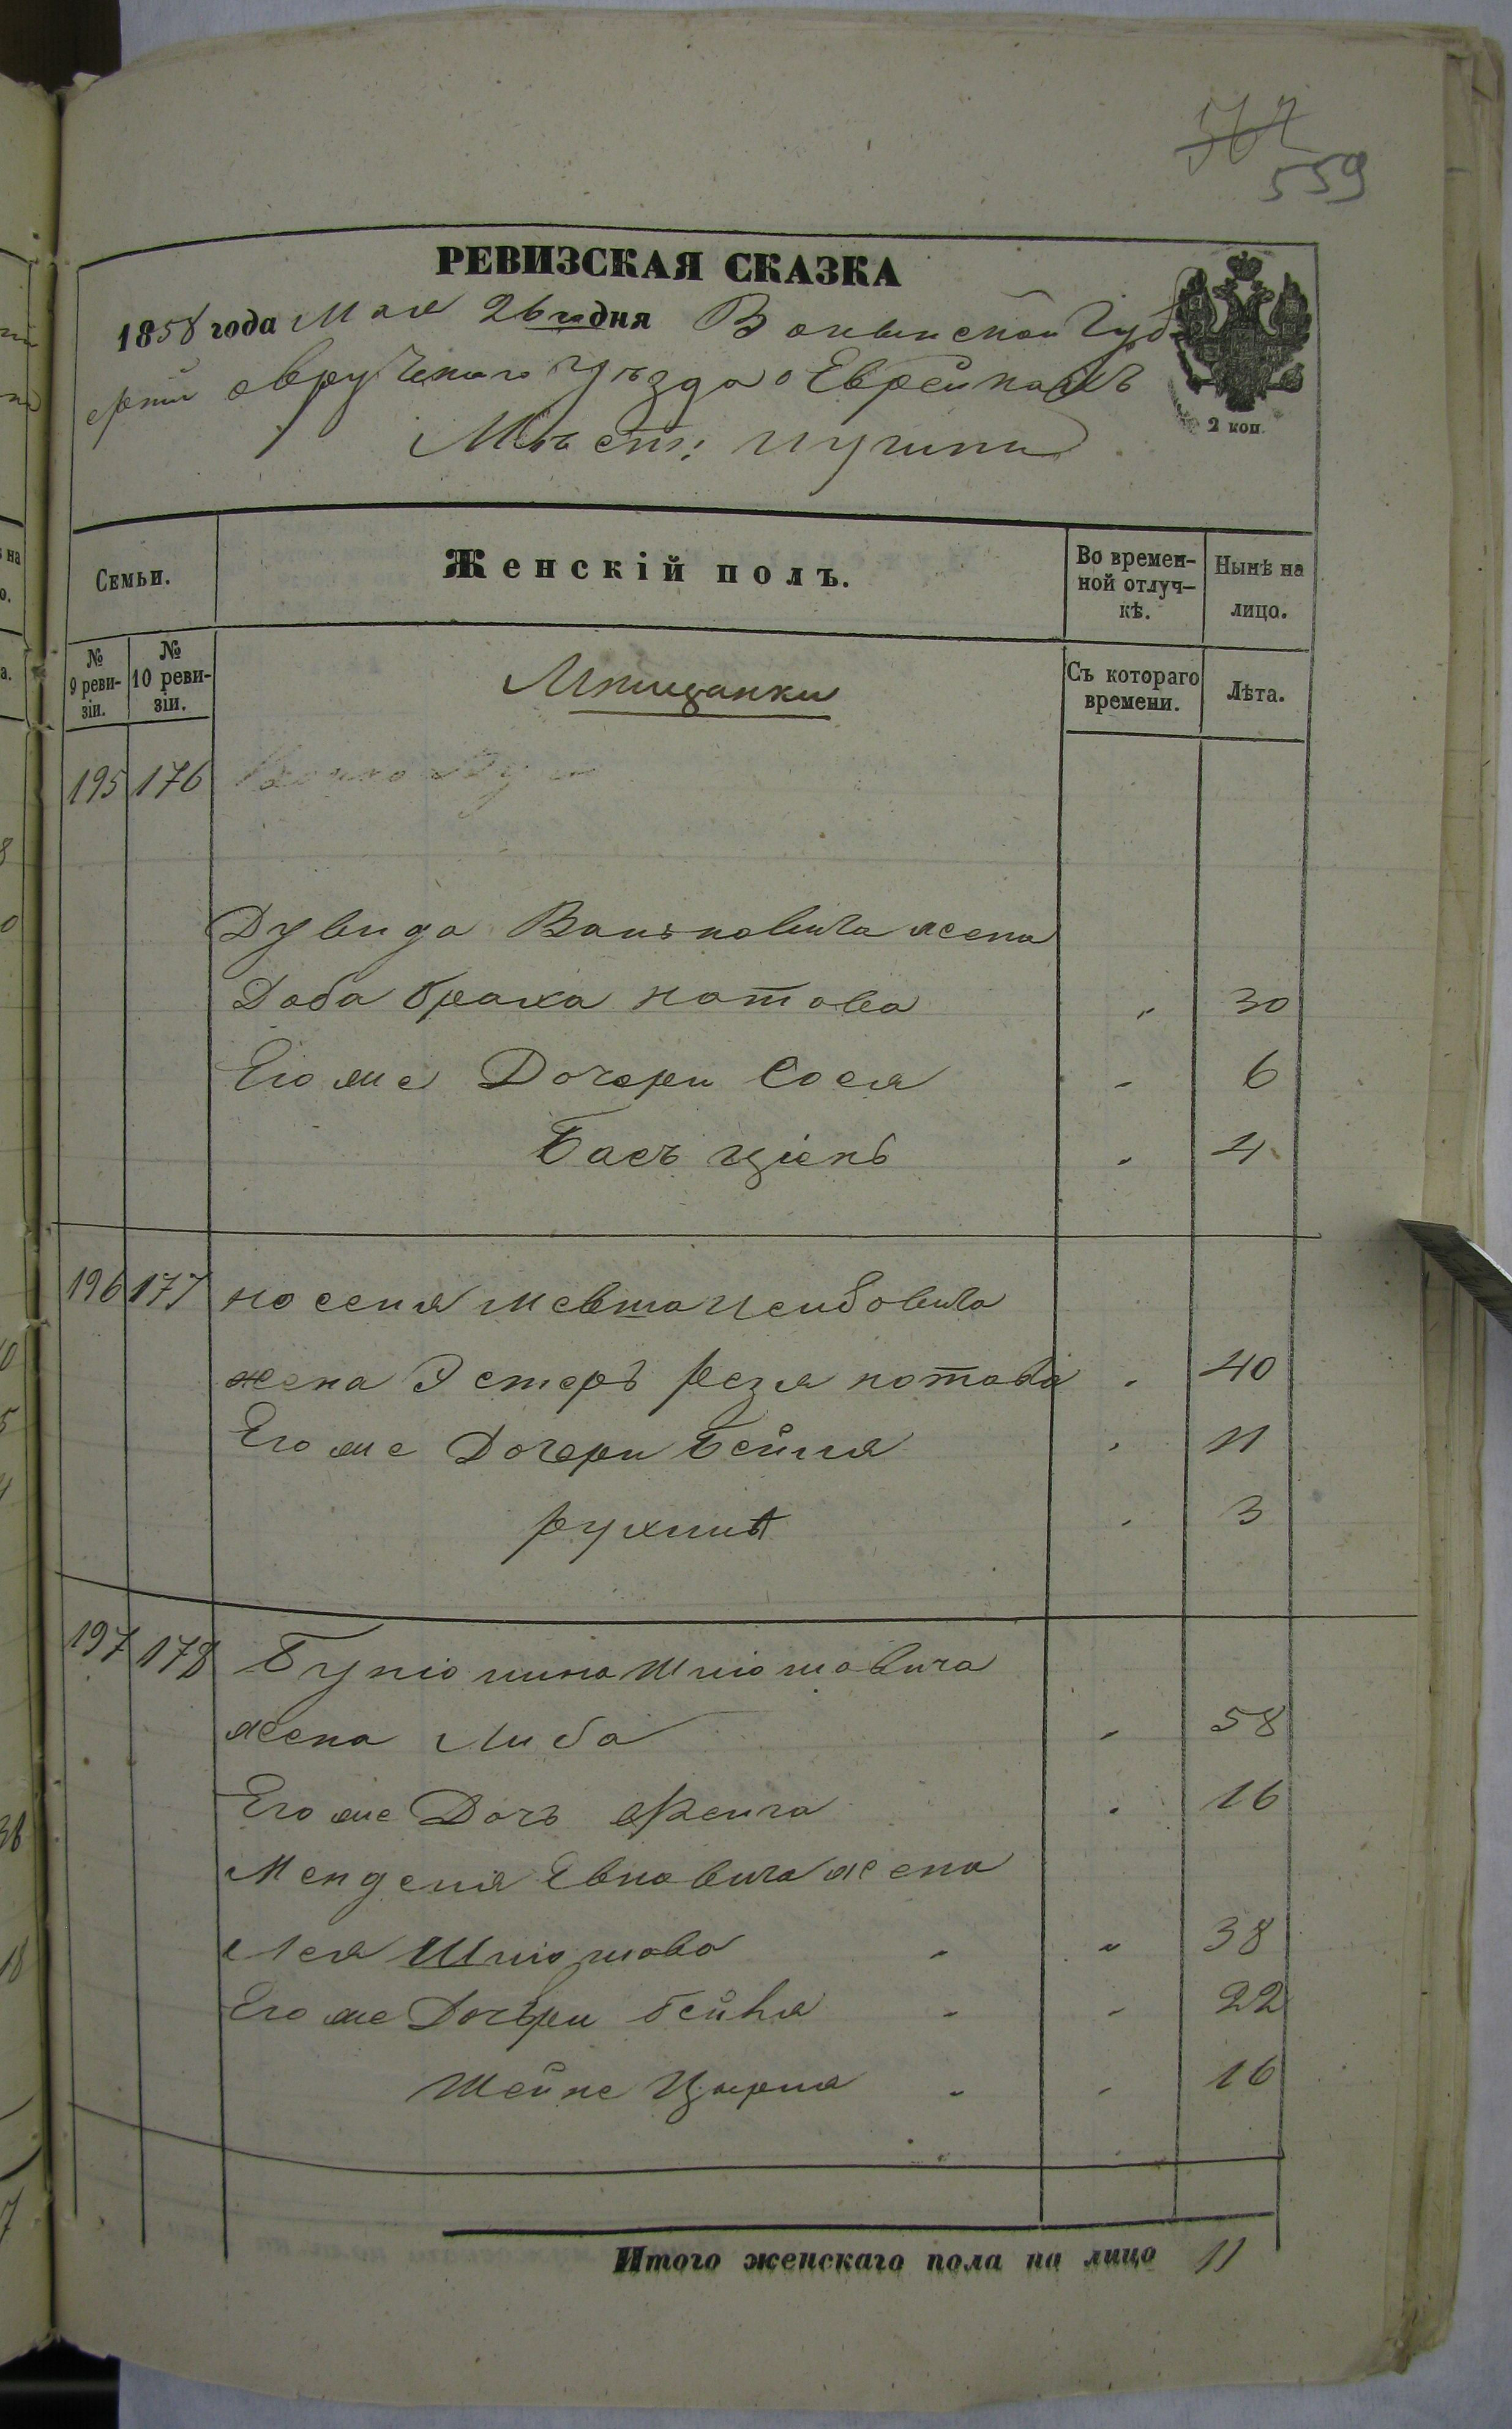 567
559
РЕВИЗСКАЯ СКАЗКА
1858 года Мая 26 го дня Волынской Губ
ерніи Овручскаго Уѣзда о Еврейкахъ
Мѣст: Лугины
2 коп.
Семьи.
Женскій полъ.
Во времен-
ной отлуч-
кѣ.
Нынѣ на
лицо.
№
9 реви-
зіи.
№
10 реви-
зіи.
Мѣщанки
Съ котораго
времени.
Лѣта.
195 176
Дувида Вольковича жена
Доба Браха Нотова " 30
Его же Дочери Сося " 6
Басъ Ціенъ " 4
196 177 Іоселя Мевша Лейбовича
жена Эстеръ Резя Нотова " 40
Его же Дочери Бейля " 11
Рухля " 3
197 178 Бунiомина Шліомовича
жена Либа " 58
Его же Дочь Фейга " 16
Менделя Евновича жена
Лея Шліомова " " 38
Его же Дочери Бейля " " 22
Шейне Цырля " " 16
Итого женскаго пола на лицо 11